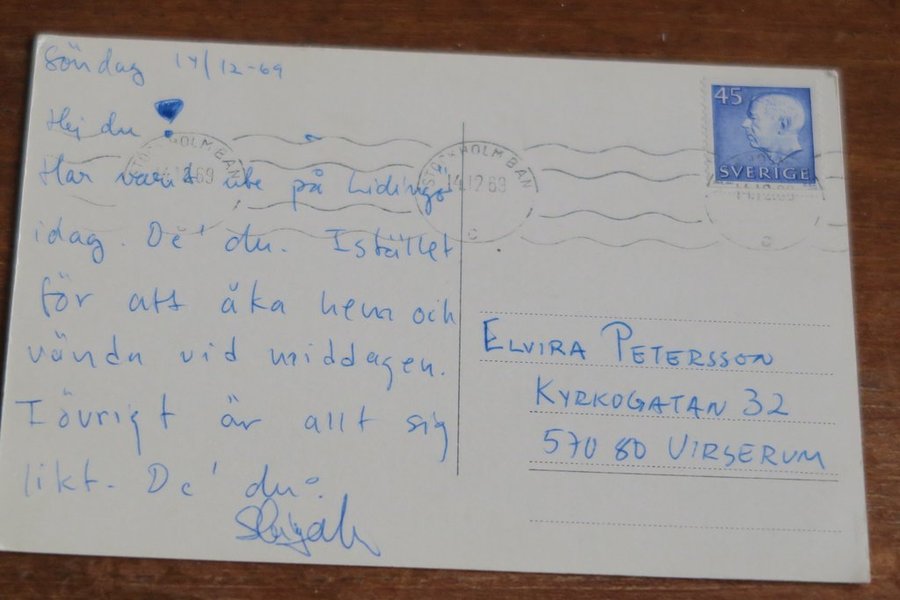 Söndag 14/12-69
Hej du
Har varit ute på Lidingö
idag. De' du. Istället
för att åka hem och
vända vid middagen.
I övrigt är allt sig
likt. De' du.
STOCKHOLM BAN
14.12.69
STOCKHOLM BAN
14.12.69
C
45
SVERIGE
14.12.69
C
ELVIRA PETERSSON
KYRKOGATAN 32
570 80 VIRSERUM